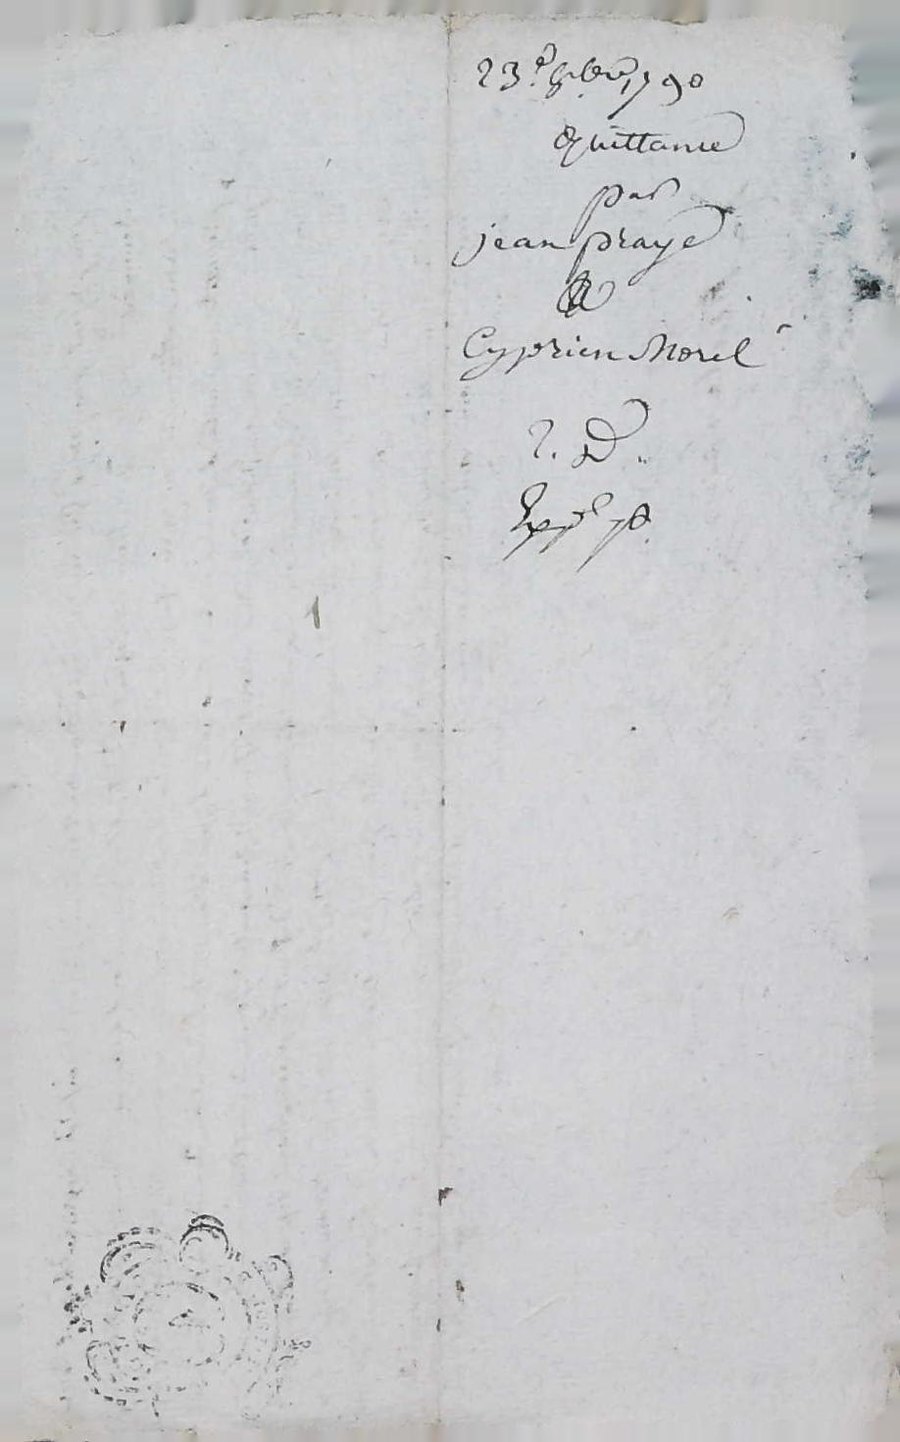 23e 8bre 1790
Quittance
par
jean praye
a
Cyprien Morel
2. D.